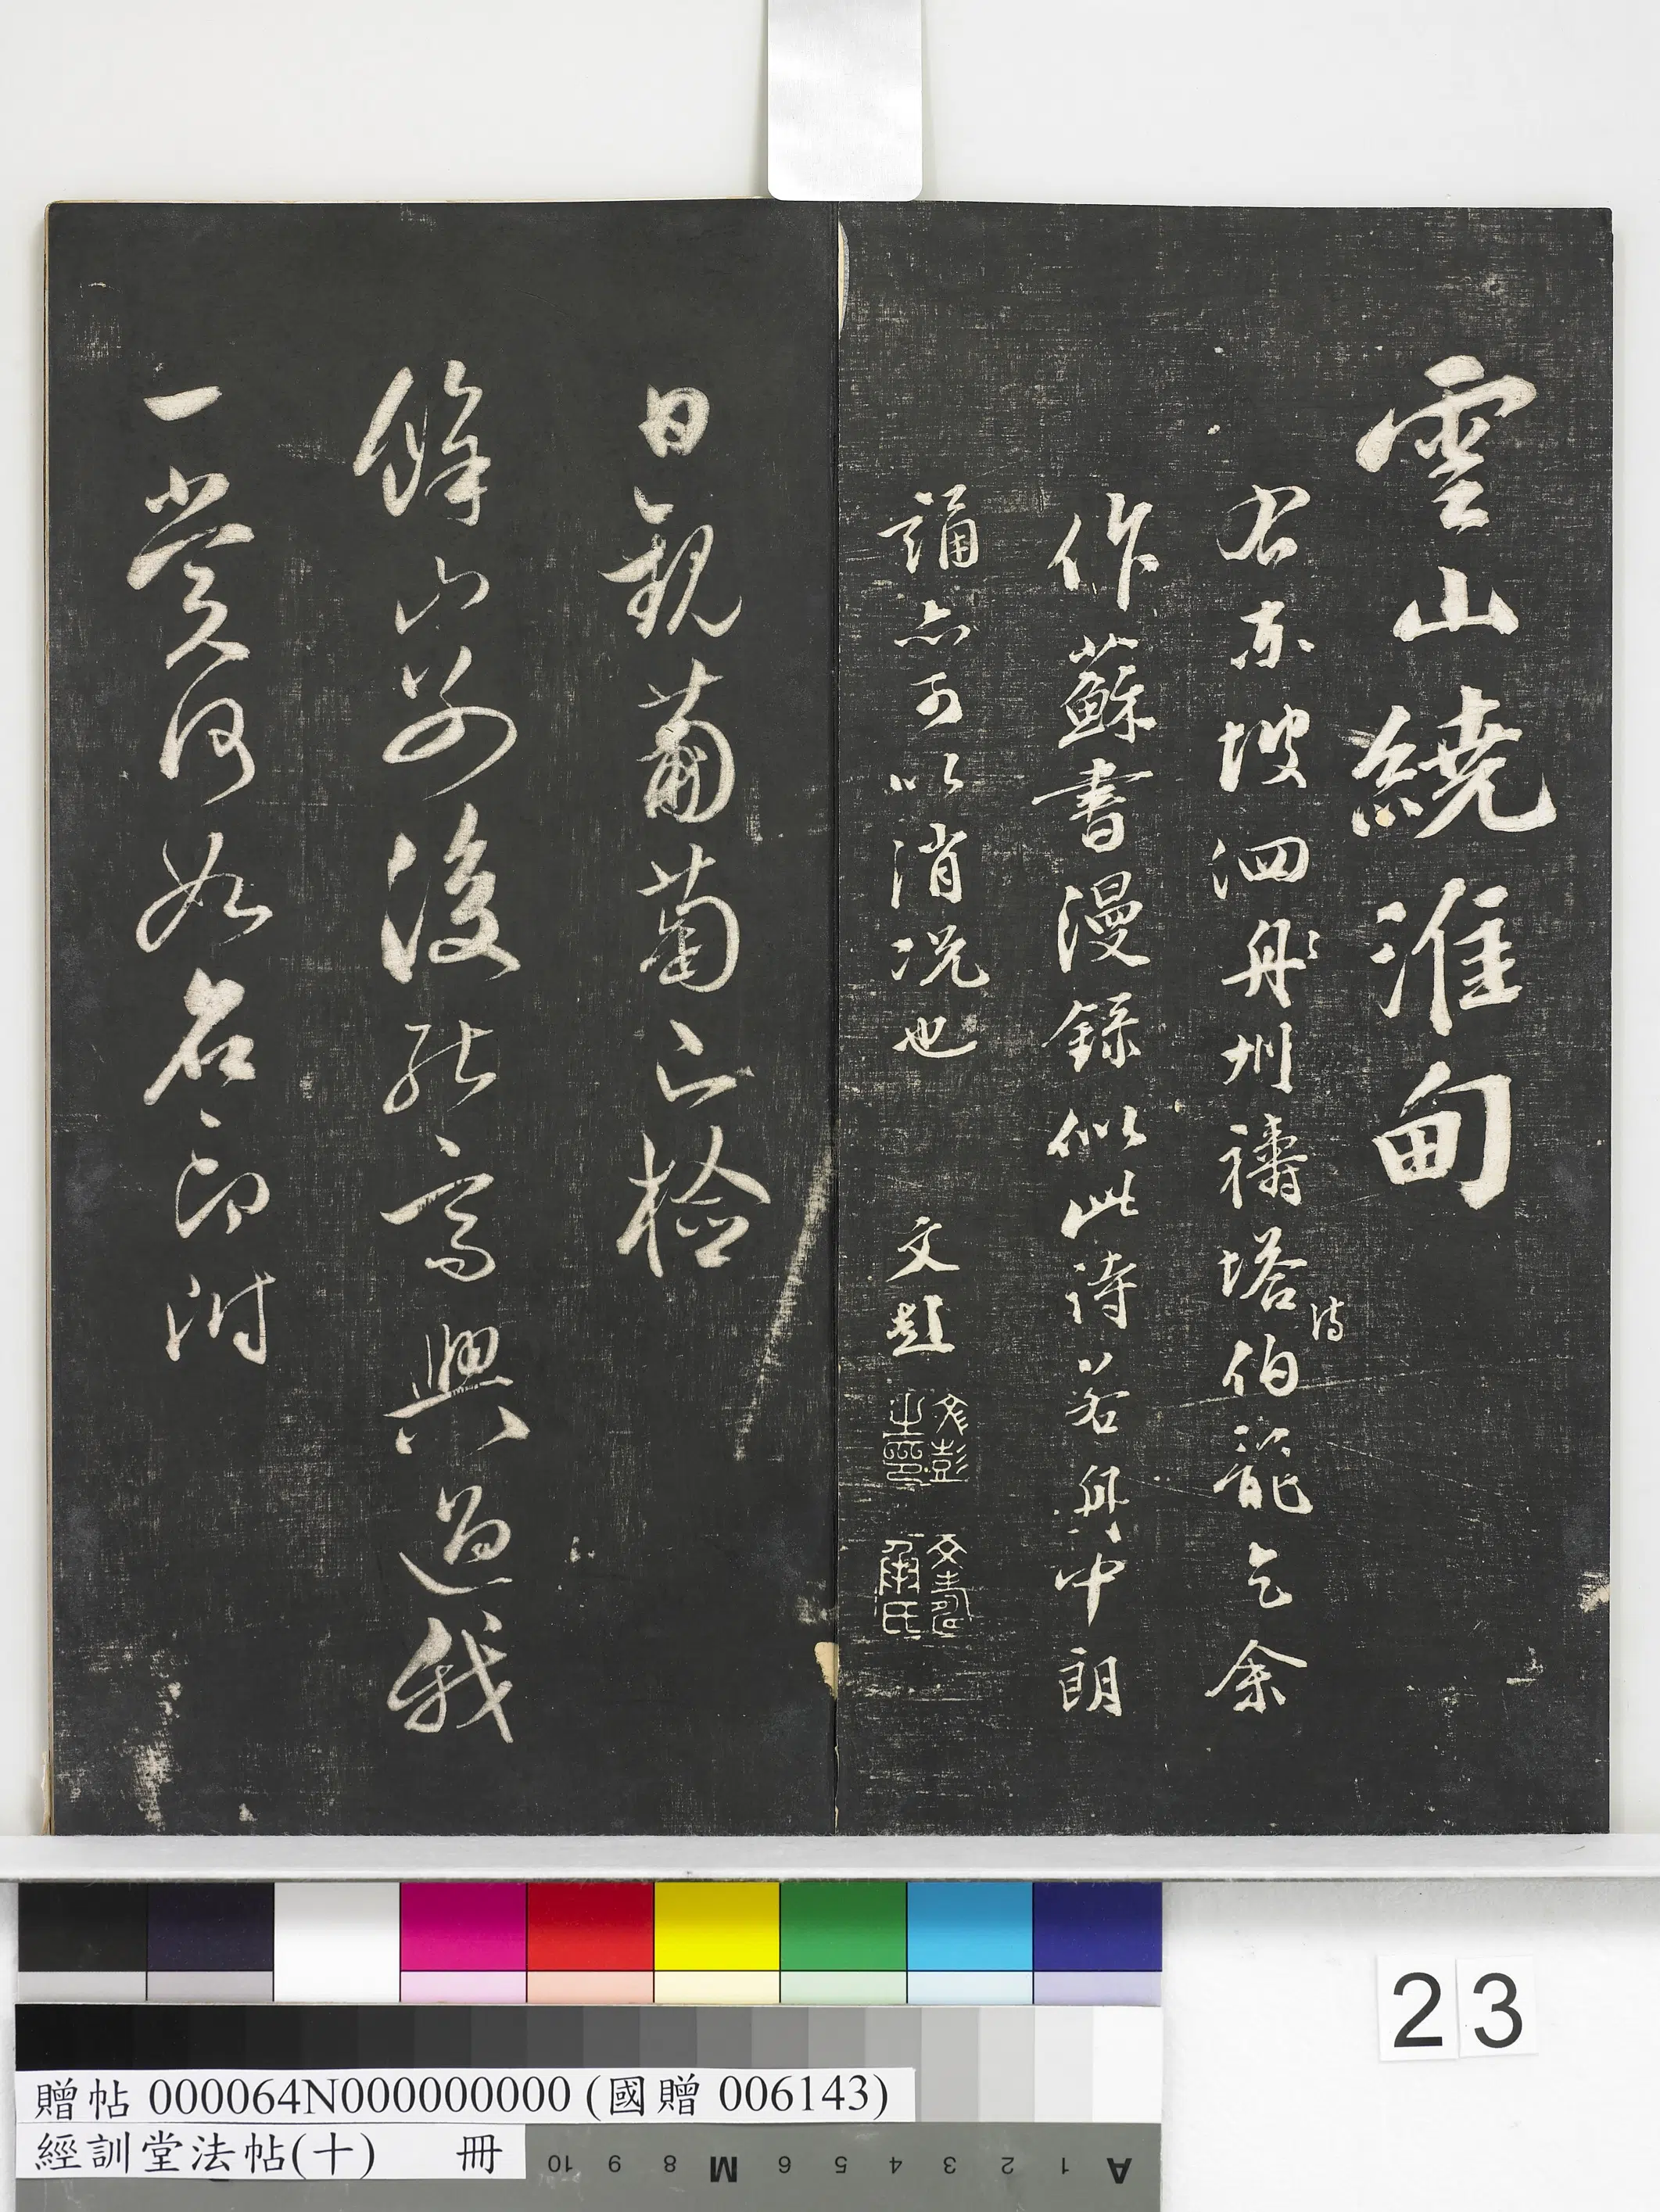 雲山繞淮甸
右東坡泗舟州禱塔詩伯龍乞余
作蘇書漫錄似此詩若與中朗
誦亦可以消況也 文彭
文彭之印
文壽承氏
日觀葡萄檢
後能高興過我
一賞何如名印附
23
贈帖 000064N000000000 (國贈 006143)
經訓堂法帖(十) 冊
10 9 8 M 6 5 4 3 2 1 A